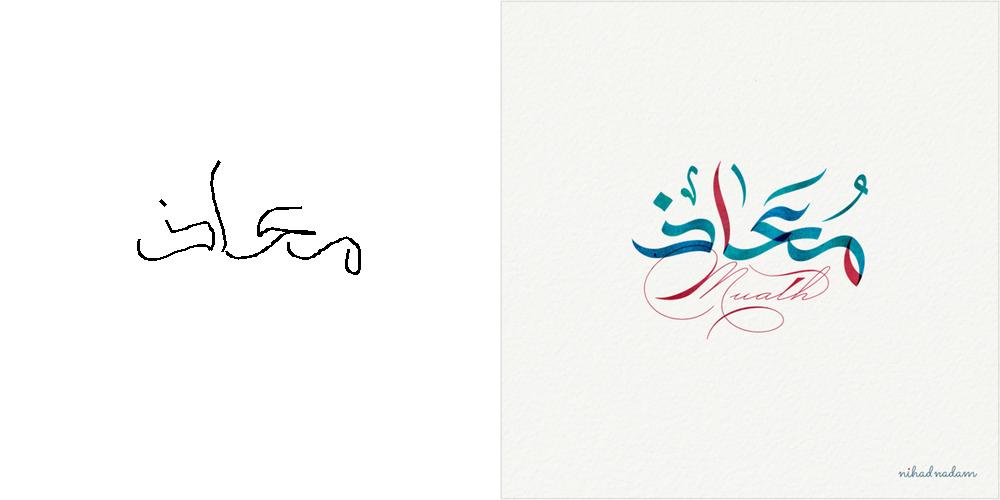 معاذ
مُعَاذْ
Muath
nihadnadam